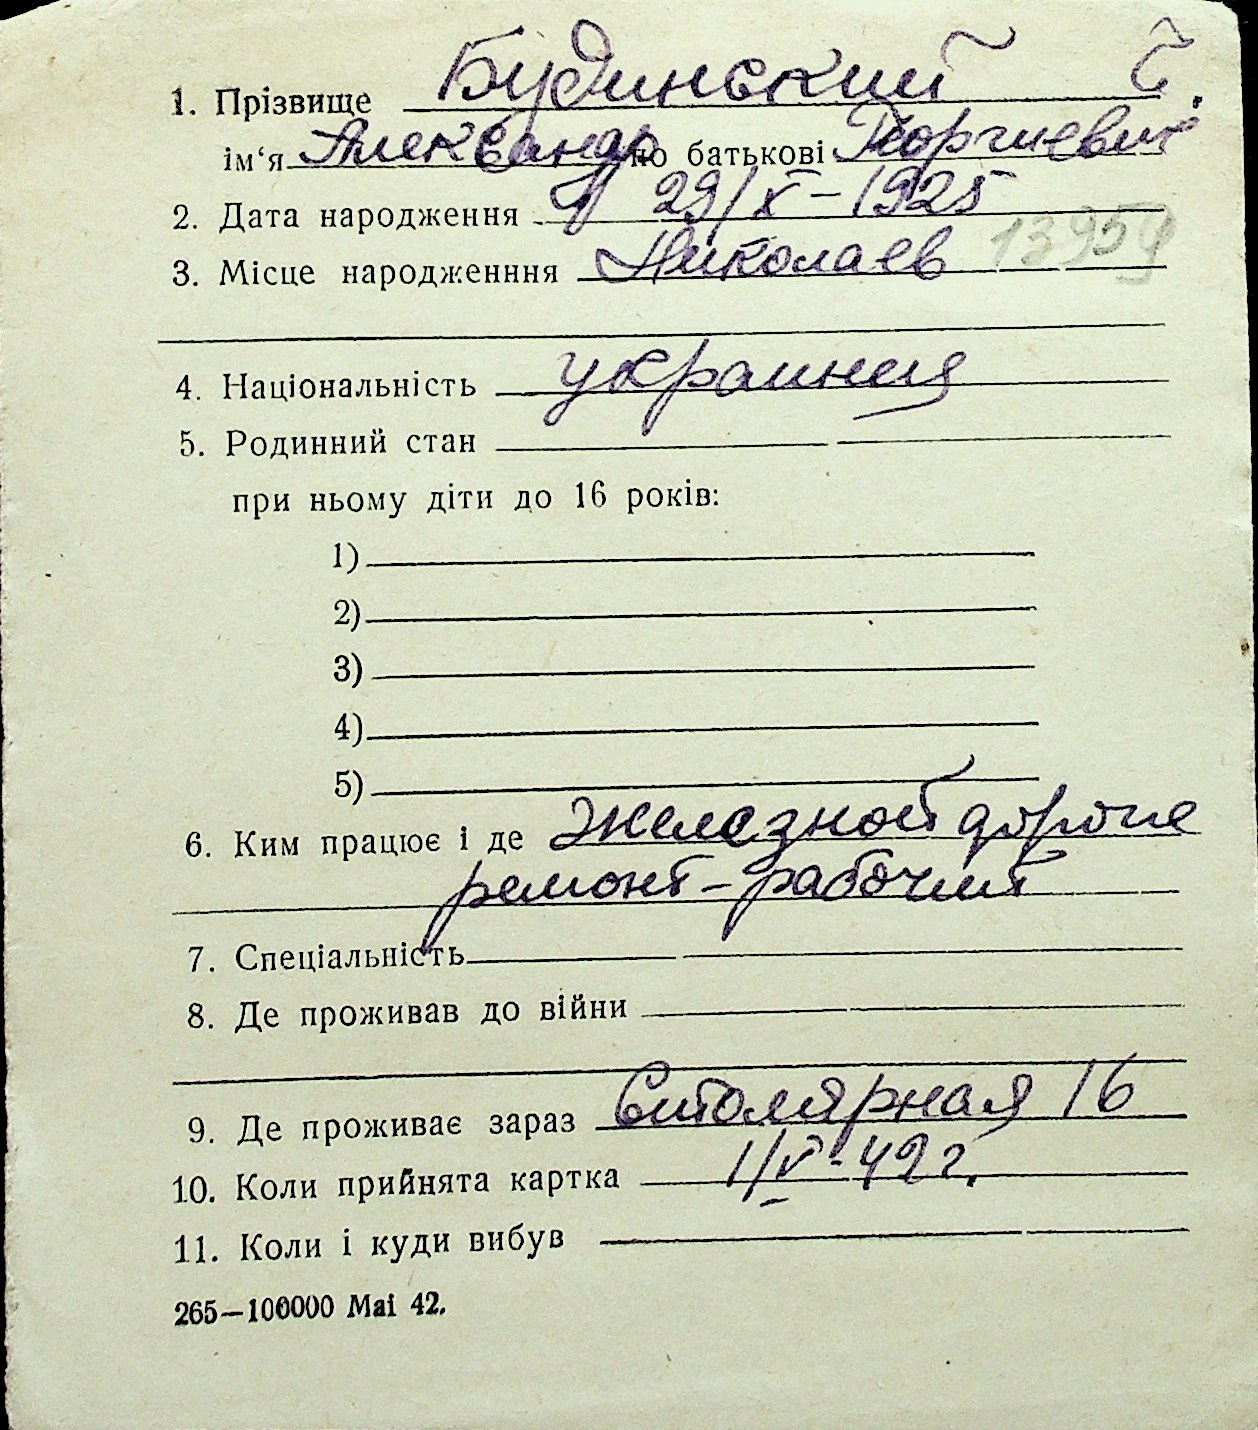 1. Прізвище Будинский
ім‘я Александр по батькові Георгиевич
2. Дата народження 29/X – 1925
3. Місце народженння Николаев 13959
4. Національність украинец
5. Родинний стан
при ньому діти до 16 років:
1)
2)
3)
4)
5)
6. Ким працює і де Железной дороге
ремонт – рабочий
7. Спеціальність
8. Де проживав до війни
9. Де проживає зараз Столярная 16
10. Коли прийнята картка 1/V - 42 г.
11. Коли і куди вибув
265—100000 Mai 42.